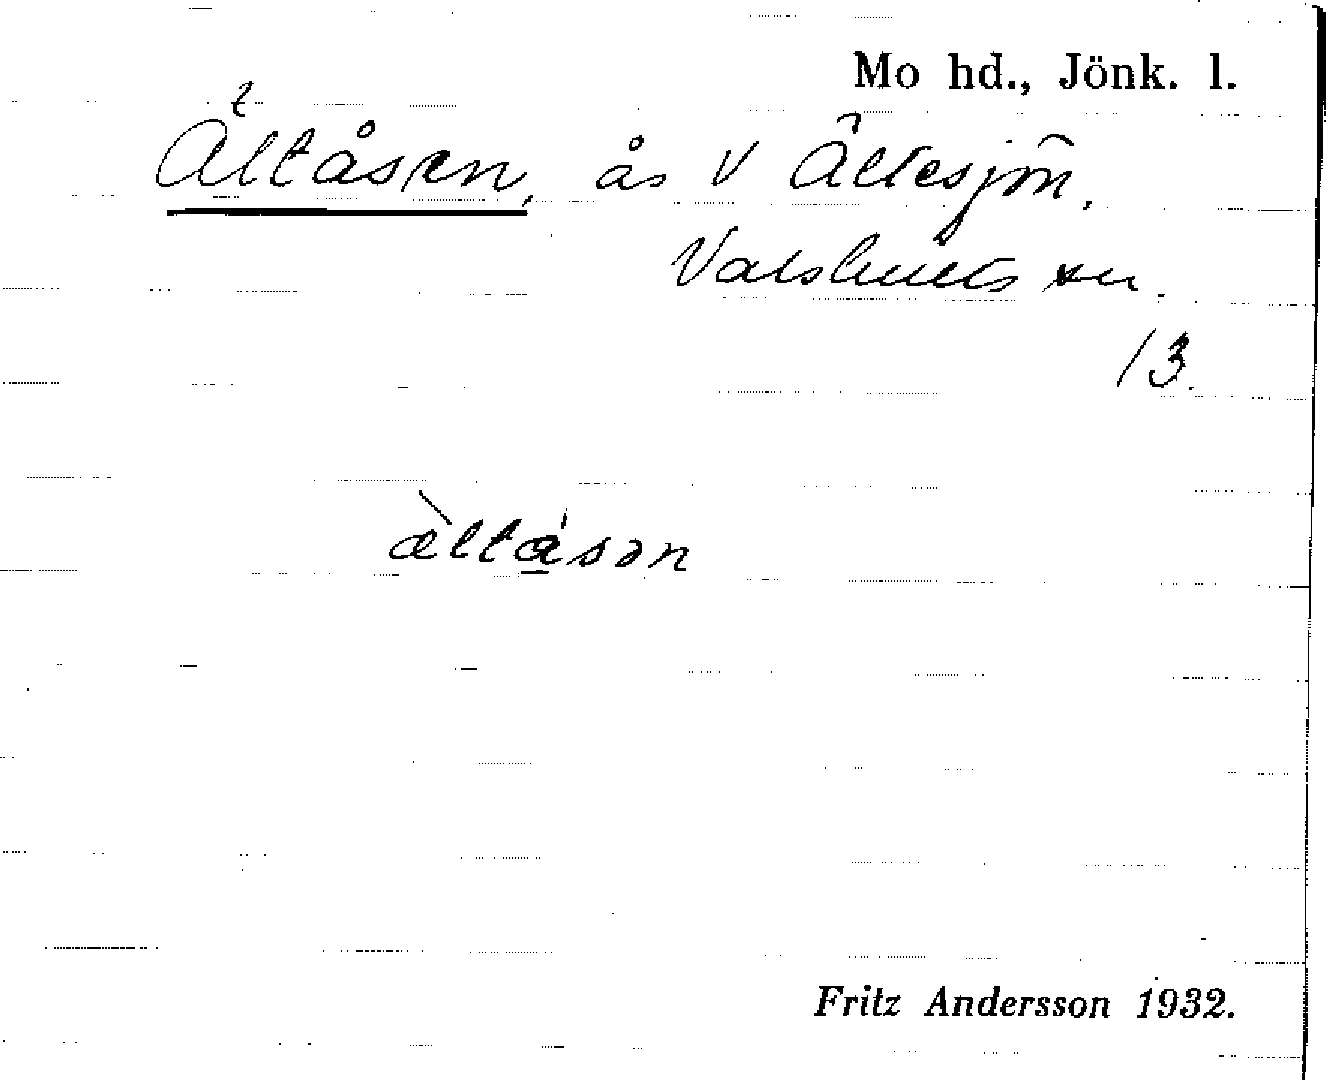 Mo hd., Jönk. l.
Ältåsen, ås V Ältesjön.
Valshults sn.
/3.
æ̀ltåsən
Fritz Andersson 1932.